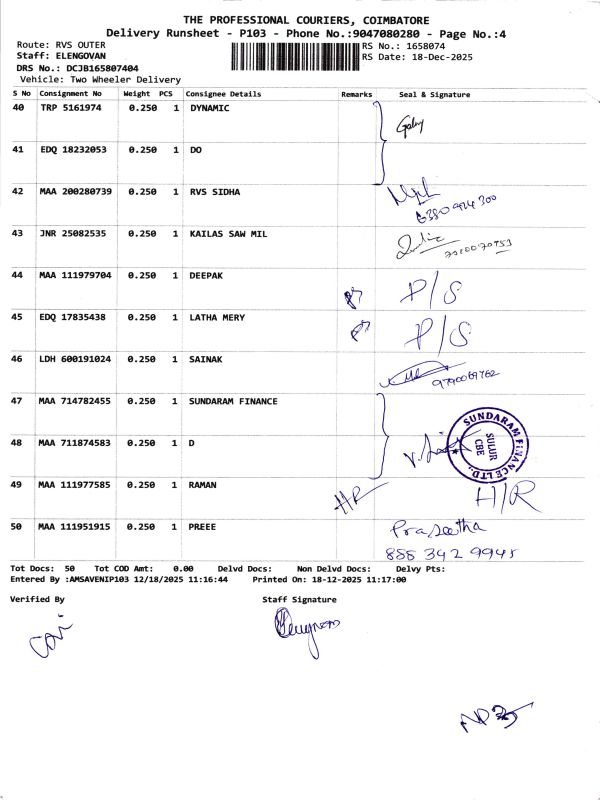 THE PROFESSIONAL COURIERS, COIMBATORE
Delivery Runsheet - P103 - Phone No.:9047080280 - Page No.:4
Route: RVS OUTER RS No.: 1658074
Staff: ELENGOVAN RS Date: 18-Dec-2025
DRS No.: DCJB165807404
Vehicle: Two Wheeler Delivery
S No Consignment No Weight PCS Consignee Details Remarks Seal & Signature
40 TRP 5161974 0.250 1 DYNAMIC
41 EDQ 18232053 0.250 1 DO
42 MAA 200280739 0.250 1 RVS SIDHA
43 JNR 25082535 0.250 1 KAILAS SAW MIL
44 MAA 111979704 0.250 1 DEEPAK P/S
45 EDQ 17835438 0.250 1 LATHA MERY P/S
46 LDH 600191024 0.250 1 SAINAK
9790069762
47 MAA 714782455 0.250 1 SUNDARAM FINANCE
SUNDARAM FINANCE LTD.
SULUR
CBE
48 MAA 711874583 0.250 1 D
49 MAA 111977585 0.250 1 RAMAN HR H/R
50 MAA 111951915 0.250 1 PREEE
888 342 9945
Tot Docs: 50 Tot COD Amt: 0.00 Delvd Docs: Non Delvd Docs: Delvy Pts:
Entered By :AMSAVENIP103 12/18/2025 11:16:44 Printed On: 18-12-2025 11:17:00
Verified By Staff Signature